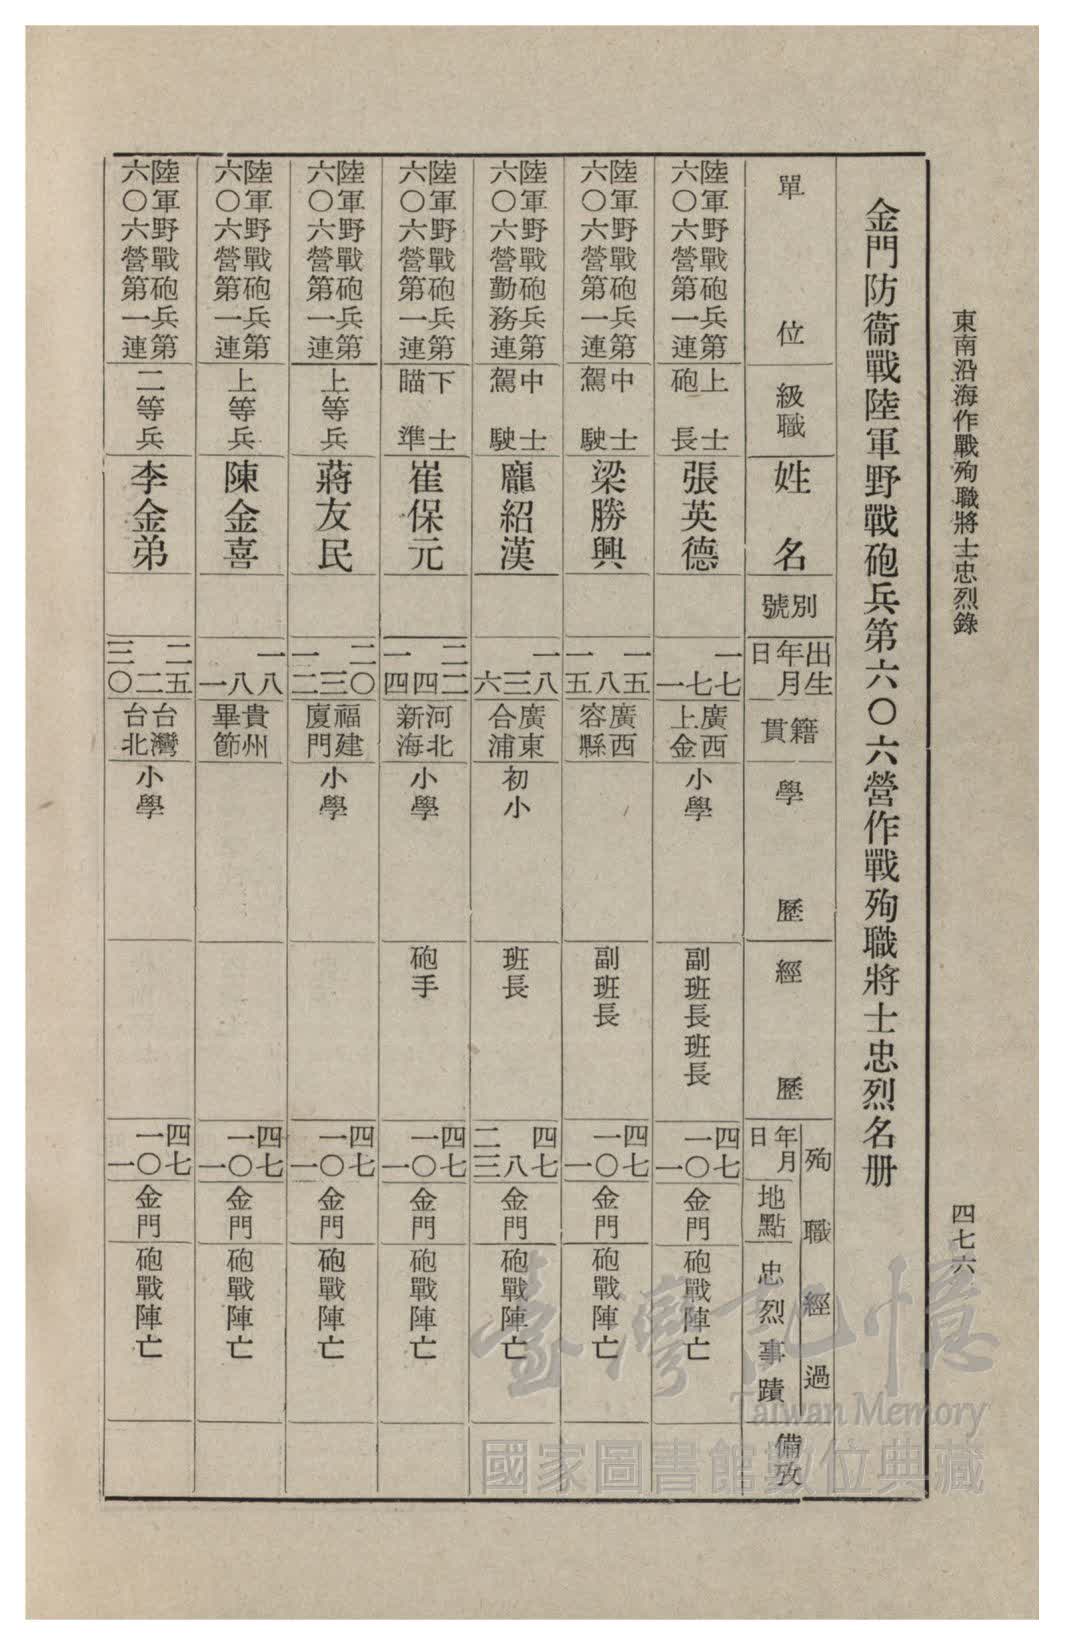 東南沿海作戰殉職將士忠烈錄
四七六
金門防衞戰陸軍野戰砲兵第六〇六營作戰殉職將士忠烈名册
單位
級職
姓名
別號
出生
年月
日
籍貫
學歷
經歷
殉職經過
年月
日
地點
忠烈事蹟
備攷
陸軍野戰砲兵第
六〇六營第一連
上士
砲長
張英德
一七
七
一
廣西
上金
小學
副班長班長
四七
一〇
一
金門
砲戰陣亡
陸軍野戰砲兵第
六〇六營第一連
中士
駕駛
梁勝興
一五
八
一五
廣西
容縣
副班長
四七
一〇
一
金門
砲戰陣亡
陸軍野戰砲兵第
六〇六營勤務連
中士
駕駛
龐紹漢
一八
三
六
廣東
合浦
初小
班長
四七
八
二三
金門
砲戰陣亡
陸軍野戰砲兵第
六〇六營第一連
下士
瞄準
崔保元
二二
四
一四
河北
新海
小學
砲手
四七
一〇
一
金門
砲戰陣亡
陸軍野戰砲兵第
六〇六營第一連
上等兵
蔣友民
二〇
三
一二
福建
廈門
小學
四七
一〇
一
金門
砲戰陣亡
陸軍野戰砲兵第
六〇六營第一連
上等兵
陳金喜
一八
八
一
貴州
畢節
四七
一〇
一
金門
砲戰陣亡
陸軍野戰砲兵第
六〇六營第一連
二等兵
李金弟
二五
二
三〇
台灣
台北
小學
四七
一〇
一
金門
砲戰陣亡
臺灣記憶
Taiwan Memory
國家圖書館數位典藏